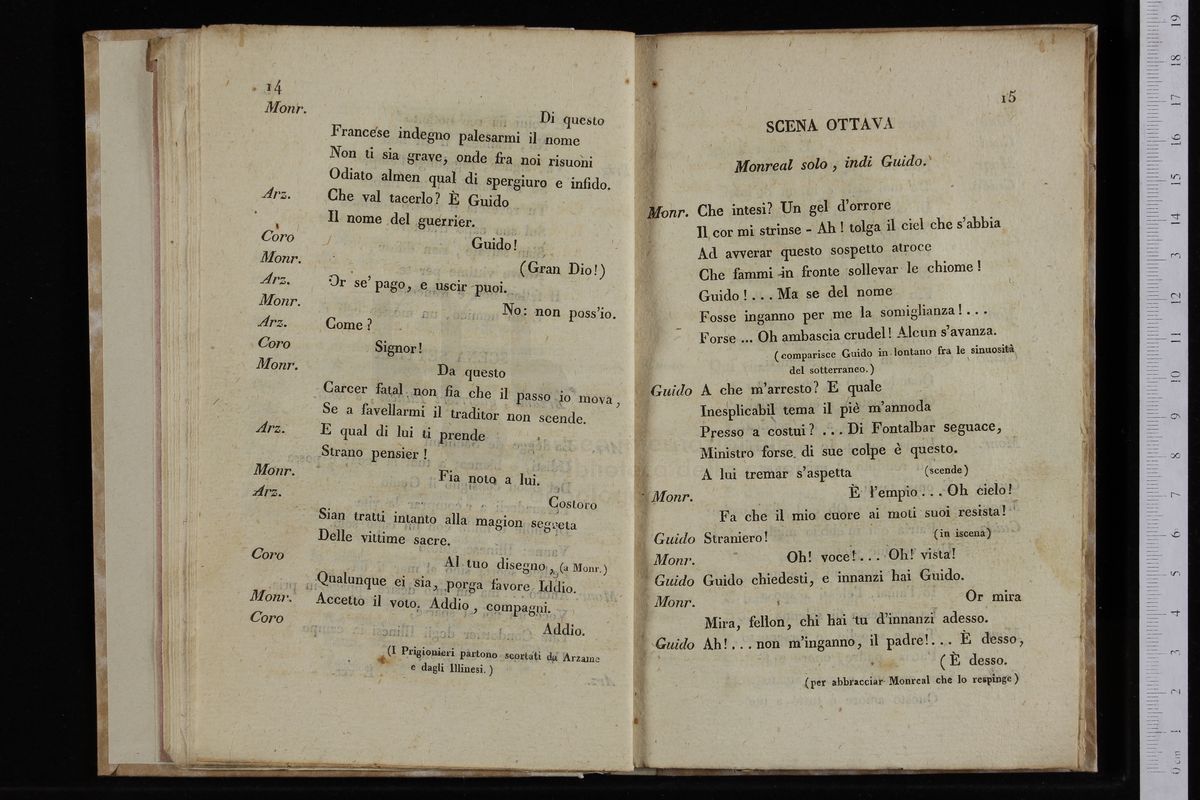 14
Monr. Di questo
Francese indegno palesarmi il nome
Non ti sia grave, onde fra noi risuoni
Odiato almen qual di spergiuro e infido.
Arz. Che val tacerlo? È Guido
Il nome del guerrier.
Coro Guido!
Monr. (Gran Dio!)
Arz. Or se' pago, e uscir puoi.
Monr. No: non poss'io.
Arz. Come?
Coro Signor!
Monr. Da questo
Carcer fatal non fia che il passo io mova,
Se a favellarmi il traditor non scende.
Arz. E qual di lui ti prende
Strano pensier!
Monr. Fia noto a lui.
Arz. Costoro
Sian tratti intanto alla magion segreta
Delle vittime sacre.
Coro Al tuo disegno, (a Monr.)
Qualunque ei sia, porga favore Iddio.
Monr. Accetto il voto. Addio, compagni.
Coro Addio.
(I Prigionieri partono scortati da Arzame
e dagli Illinesi.)
15
SCENA OTTAVA
Monreal solo, indi Guido.
Monr. Che intesi? Un gel d'orrore
Il cor mi strinse - Ah! tolga il ciel che s'abbia
Ad avverar questo sospetto atroce
Che fammi in fronte sollevar le chiome!
Guido!... Ma se del nome
Fosse inganno per me la somiglianza!...
Forse ... Oh ambascia crudel! Alcun s'avanza.
(comparisce Guido in lontano fra le sinuosità
del sotterraneo.)
Guido A che m'arresto? E quale
Inesplicabil tema il piè m'annoda
Presso a costui? ... Di Fontalbar seguace,
Ministro forse di sue colpe è questo.
A lui tremar s'aspetta (scende)
Monr. È l'empio... Oh cielo!
Fa che il mio cuore ai moti suoi resista!
Guido Straniero! (in iscena)
Monr. Oh! voce!... Oh! vista!
Guido Guido chiedesti, e innanzi hai Guido.
Monr. Or mira
Mira, fellon, chi hai tu d'innanzi adesso.
Guido Ah!... non m'inganno, il padre!... È desso,
(È desso.
(per abbracciar Monreal che lo respinge)
0 cm 1 2 3 4 5 6 7 8 9 10 11 12 13 14 15 16 17 18 19